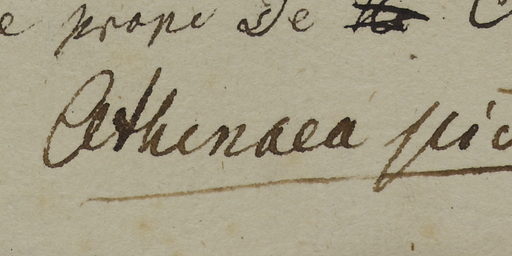 e prope de
Athenaea pi